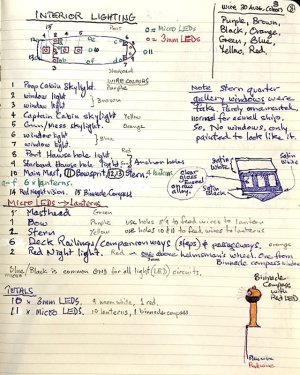 INTERIOR LIGHTING
Wire 30 awg. Colours
8
Purple, Brown,
Black, Orange,
Green, Blue,
Yellow, Red.
Port
= MICRO LEDS
= 3mm LEDS
Starboard
WIRE COLOURS
1 Poop Cabin Skylight. Purple
2 window light
3 window light
Brown
4 Captain Cabin skylight Yellow
5 Gunn/Mess skylight. Orange
6 window light
7 window light
Blue
8 Port Hawse hole light Red
9 Starboard Hawse hole light
Anchor holes
10 Main Mast, 11 Bowsprit, 12/13 Stern
6 x lanterns.
14 Red Nightvision. 15 Binnacle Compass
Note stern quarter
gallery windows were
fake. Purely ornamental
normal for actual ship.
So, No windows, only
painted to look like it.
Satin White
Satin Black
Micro LEDS → lanterns
5 Masthead Green
1 Bow Purple use holes 8+9 to feed wires to lantern
2 Stern Yellow use holes 10+11 to feed wires to lanterns
6 Deck Railings/companionways (steps) & passageways. orange
2 Red Night light. Red → one above helmsman's wheel. One from
Binnacle compass window
Blue/Black is common GND for all light (LED) circuits.
TOTALS
10 x 3mm LEDS, 9 warm white, 1 red.
11 x MICRO LEDS. 10 lanterns, 1 binnacle compass
Binnacle
Compass
with
Red LED